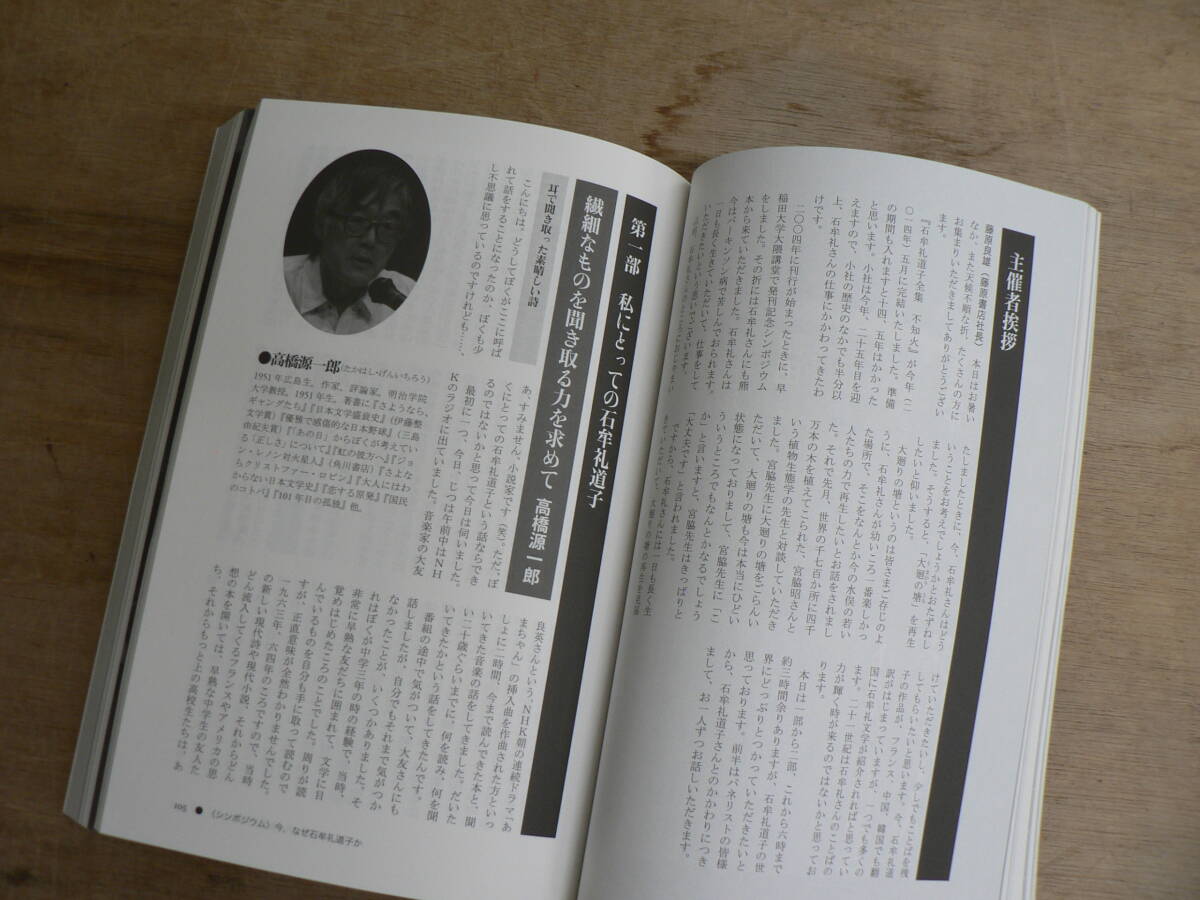 主催者挨拶
藤原良雄（藤原書店社長）　本日はお暑い
なか、また天候不順な折、たくさんの方に
お集まりいただきましてありがとうござい
ます。
『石牟礼道子全集　不知火』が今年（二
〇一四年）五月に完結いたしました。準備
の期間も入れますと十四、五年はかかった
と思います。小社は今年、二十五年目を迎
えますので、小社の歴史のなかでも半分以
上、石牟礼さんの仕事にかかわってきたわ
けです。
二〇〇四年に刊行が始まったときに、早
稲田大学大隈講堂で発刊記念シンポジウム
をしました。その折には石牟礼さんにも熊
本から来ていただきました。石牟礼さんは
今はパーキンソン病で苦しんでおられます。
一日も長く生きていただいて、仕事をして
いただきたいという思いでございます。
たしましたときに、今、石牟礼さんはどう
いうことをお考えでしょうかとおたずねし
ました。そうすると、「大廻の塘」を再生
したいと仰いました。
大廻りの塘というのは皆さまご存じのよ
うに、石牟礼さんが幼いころ一番楽しかっ
た場所で、そこをなんとか今の水俣の若い
人たちの力で再生したいとお話をされまし
た。それで先月、世界の千七百か所に四千
万本の木を植えてこられた、宮脇昭さんと
いう植物生態学の先生と対談していただき
ました。宮脇先生に大廻りの塘をごらんい
ただいて、大廻りの塘も今は本当にひどい
状態になっておりまして、宮脇先生に「こ
ういうところでもなんとかなるでしょう
か」と言いますと、宮脇先生はきっぱりと
「大丈夫です」と言われました。
ですから、石牟礼さんには一日も長く生
きていただいて、大廻りの塘の再生を見届
けていただきたいし、少しでもことばを残
してもらいたいと思います。今、石牟礼道
子の作品が、フランス、中国、韓国でも翻
訳がはじまっていますが、一つでも多くの
国に石牟礼文学が紹介されればと思ってい
ます。二十一世紀は石牟礼さんのことばの
力が輝く時が来るのではないかと思ってお
ります。
本日は一部から二部、これから六時まで
約三時間余りありますが、石牟礼道子の世
界にどっぷりとつかっていただきたいと
思っております。前半はパネリストの皆様
から、石牟礼道子さんとのかかわりにつき
まして、お一人ずつお話しいただきます。
第一部　私にとっての石牟礼道子
繊細なものを聞き取る力を求めて　高橋源一郎
耳で聞き取った素晴しい詩
こんにちは。どうしてぼくがここに呼ば
れて話をすることになったのか、ぼくも少
し不思議に思っているのですけれども……、
●高橋源一郎（たかはし・げんいちろう）
1951年広島生。作家、評論家。明治学院
大学教授。1951年生。著書に『さようなら、
ギャングたち』『日本文学盛衰史』（伊藤整
文学賞）『優雅で感傷的な日本野球』（三島
由紀夫賞）『「あの日」からぼくが考えてい
る「正しさ」について』『虹の彼方へ』『ジョ
ン・レノン対火星人』（角川書店）『さよな
らクリストファー・ロビン』『大人にはわ
からない日本文学史』『恋する原発』『国民
のコトバ』『101年目の孤独』他。
あ、すみません、小説家です（笑）。ただ、ぼ
くにとっての石牟礼道子という話ならでき
るのではないかと思って今日は伺いました。
最初に一つ、今日、じつは午前中はNH
Kのラジオに出ていました。音楽家の大友
良英さんという、NHK朝の連続ドラマ『あ
まちゃん』の挿入曲を作曲された方といっ
しょに二時間、今まで読んできた本と、聞
いてきた音楽の話をしてきました。だいた
い二十歳ぐらいまでに、何を読み、何を聞
いてきたかという話をしてきたんです。
番組の途中で気がついて、大友さんにも
話しましたが、自分でもそれまで気がつか
なかったことが、いくつかありました。そ
れはぼくが中学三年の時の経験で、当時、
非常に早熟な友だちに囲まれて、文学に目
覚めはじめたころのことでした。周りが読
んでいるものを自分も手に取って読むので
すが、正直意味が全然わかりませんでした。
一九六三年、六四年のころですので、当時
の新しい現代詩や現代小説、それからどん
どん流入してくるフランスやアメリカの思
想の本を開いては、早熟な中学生の友人た
ち、それからもっと上の高校生たちは、あ
105 ● 〈シンポジウム〉今、なぜ石牟礼道子か